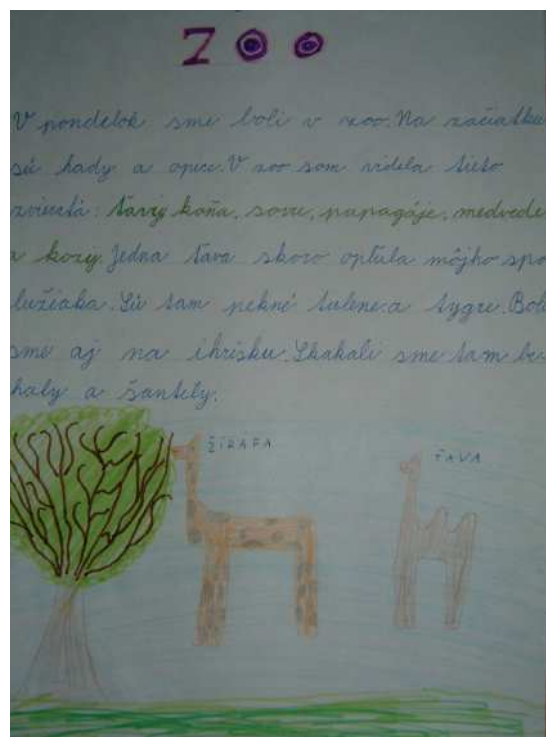 ZOO
V pondelok sme boli v zoo. Na začiatku
sú hady a opice. V zoo som videla tieto
zvieratá: ťavy, koňa, sovu, papagáje, medvede
a kozy. Jedna ťava skoro opľula môjho spo
lužiaka. Sú tam pekné tulene a tygre. Boli
sme aj na ihrisku. Skakali sme tam be-
haly a šantely.
ŽIRAFA
ŤAVA